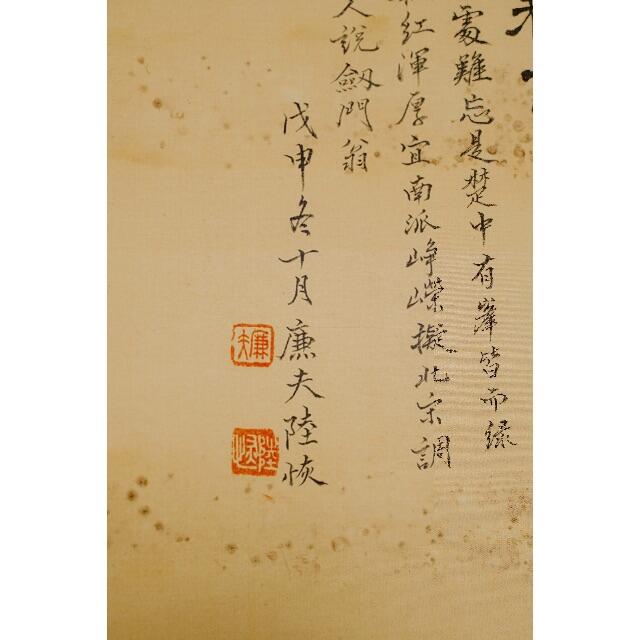 處難忘是楚中有峯皆而綠
紅渾厚宜南派崢嶸擬北宋調
人說劔門翁
戊申冬十月廉夫陸恢
廉夫
陸恢